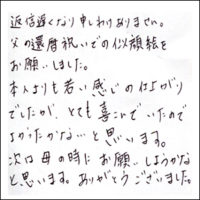 返信遅くなり申しわけありません。
父の還暦祝いでの似顔絵を
お願いしました。
本人よりも若い感じの仕上がり
でしたが、とても喜こんでいたので
よかったかな…と思います。
次は母の時にお願いしようかな
と思います。ありがとうございました。